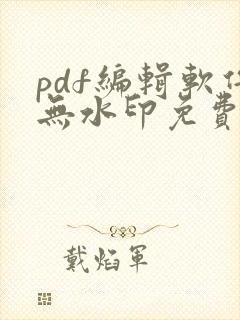 pdf編輯軟件
無水印免費
戴焰軍